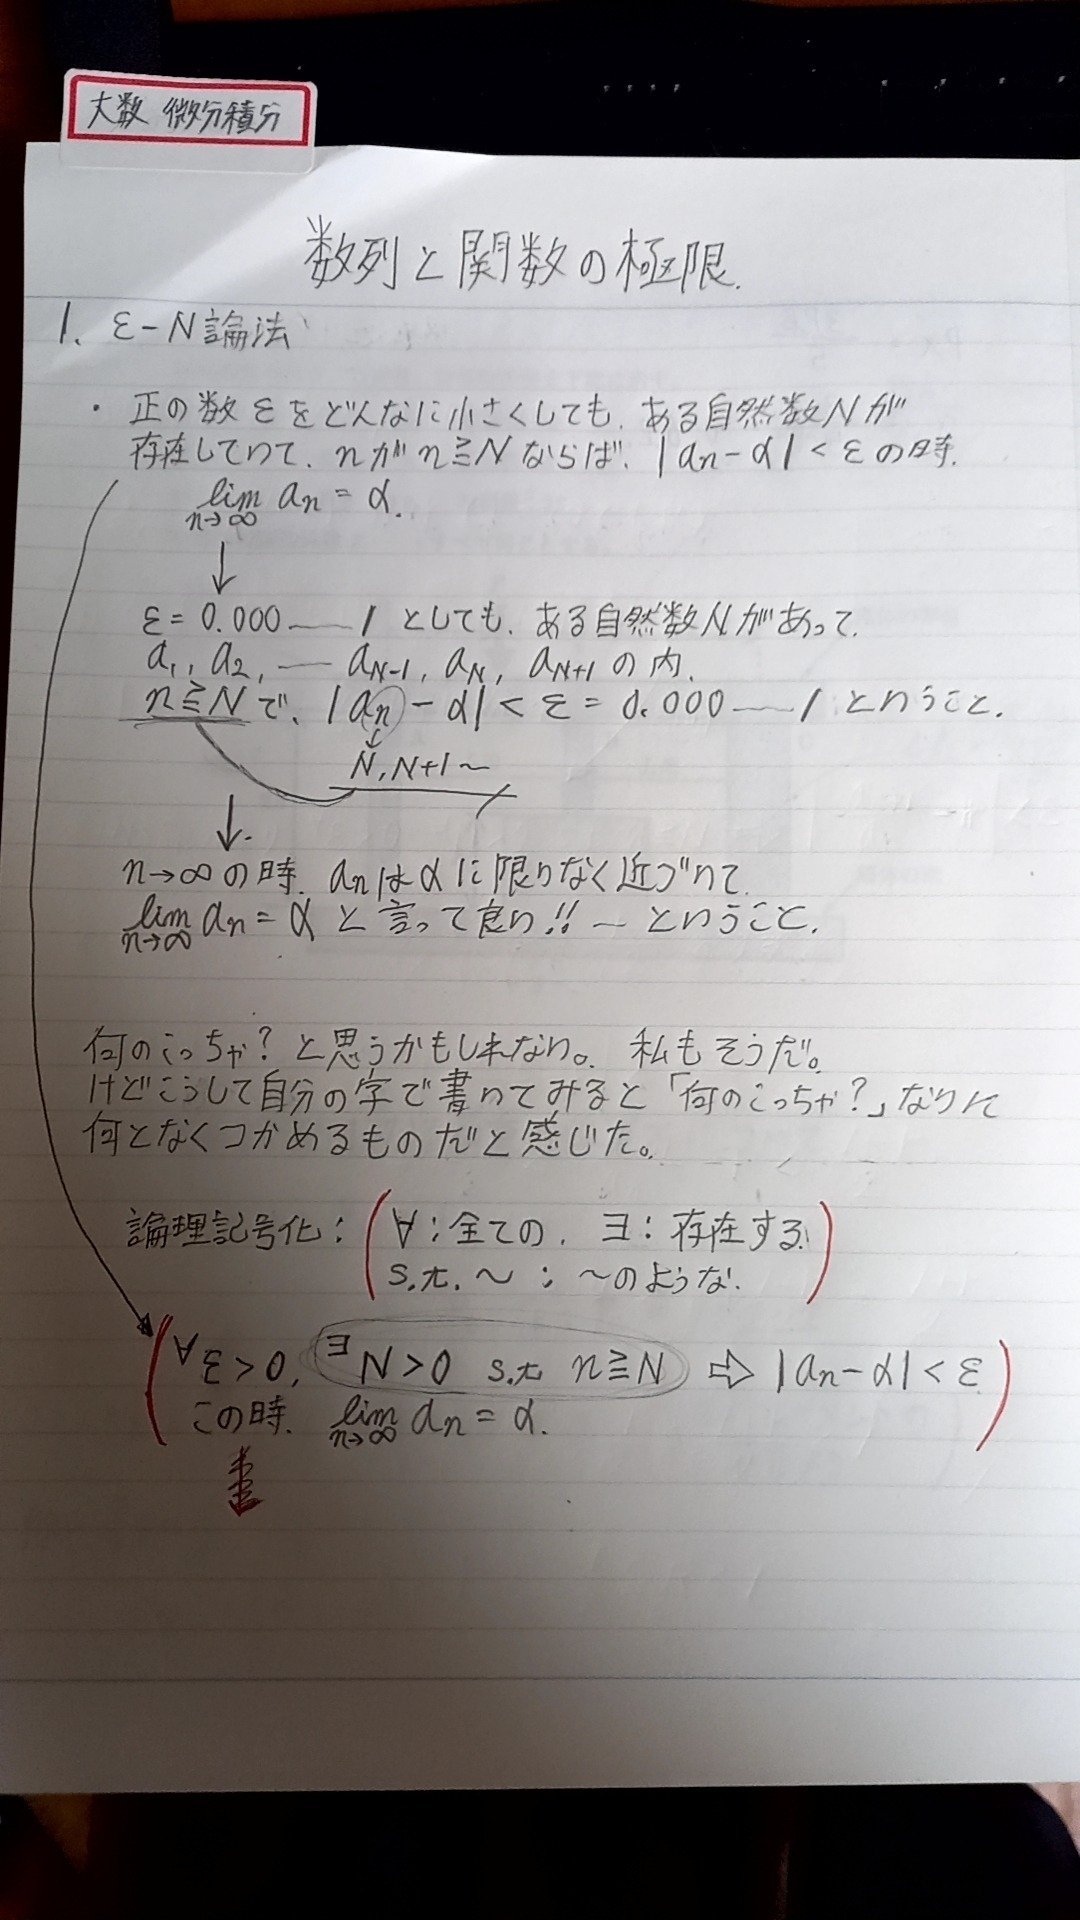 大数 微分積分
数列と関数の極限.
1. ε-N論法
・正の数εをどんなに小さくしても、ある自然数Nが
存在していて、nがn≧Nならば、|an-α|<εの時、
lim an = α.
n→∞
↓
ε=0.000――1 としても、ある自然数Nがあって、
a1, a2, ―― aN-1, aN, aN+1 の内、
n≧Nで、|an-α|<ε=0.000――1 ということ.
↓
N, N+1~
↓
n→∞の時、anはαに限りなく近づいて、
lim an = α と言って良い!! ~ということ.
n→∞
何のこっちゃ?と思うかもしれない。 私もそうだ。
けどこうして自分の字で書いてみると「何のこっちゃ?」なりに
何となくつかめるものだと感じた。
論理記号化: (∀:全ての、 ∃:存在する.
s.t. ~ : ~のような.)
(∀ε>0, ∃N>0 s.t. n≧N ⇨ |an-α|<ε.
この時、 lim an = α.)
n→∞